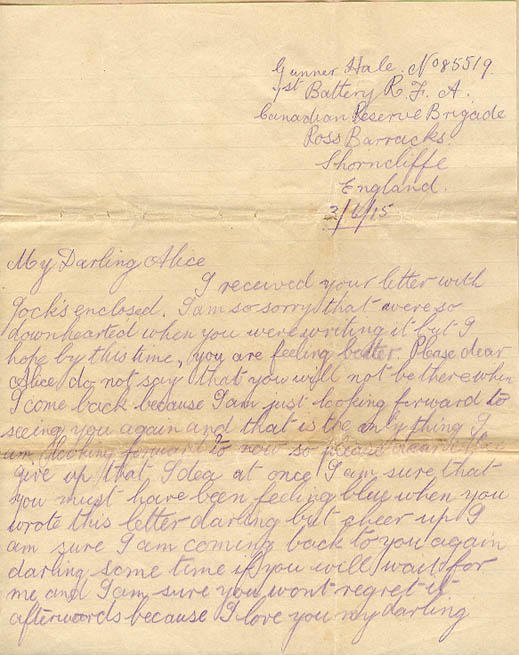 Gunner Hale. No 85519.
1st Battery R. F. A.
Canadian Reserve Brigade
Ross Barracks.
Shorncliffe
England.
2/6/15
My Darling Alice
I received your letter with
Jock's enclosed. I am so sorry that were so
downhearted when you were writing it but I
hope by this time, you are feeling better. Please dear
Alice do not say that you will not be there when
I come back because I am just looking forward to
seeing you again and that is the only thing I
am looking forward to now so please dear Alice
give up that Idea at once. I am sure that
you must have been feeling blue when you
wrote this letter darling but cheer up I
am sure I am coming back to you again
darling some time if you will wait for
me and I am sure you wont regret it
afterwards because I love you my darling